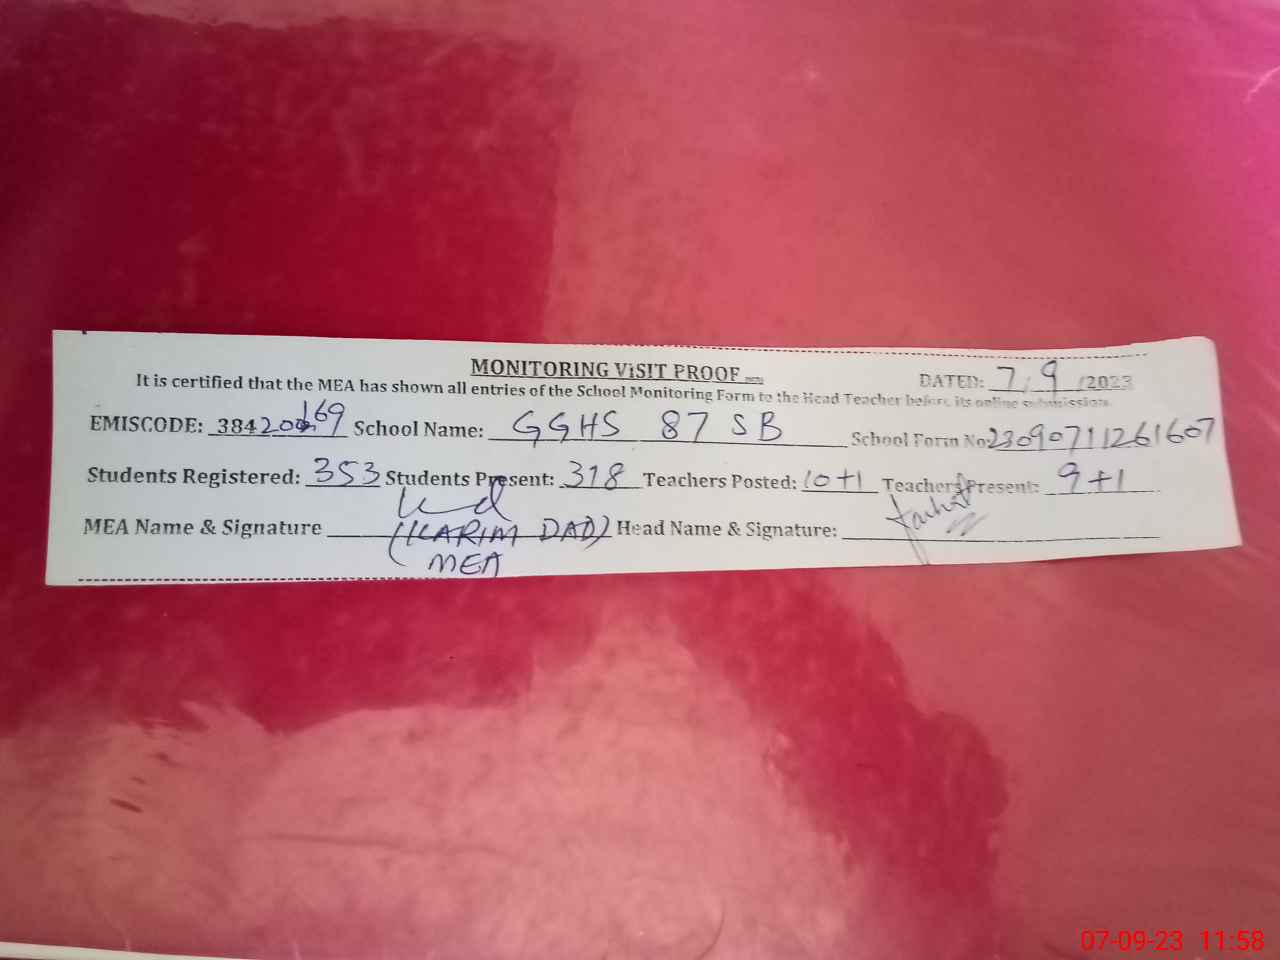 MONITORING ViSIT PROOF
DATED: 7.9/2023
It is certified that the MEA has shown all entries of the School Monitoring Form to the Head Teacher before its online submission.
EMISCODE: 384200169 School Name: GGHS 87 SB School Form No: 23090711261607
Students Registered: 353 Students Present: 318 Teachers Posted: 10+1 Teachers Present: 9+1
MEA Name & Signature (KARIM DAD) Head Name & Signature:
MEA
07-09-23 11:58